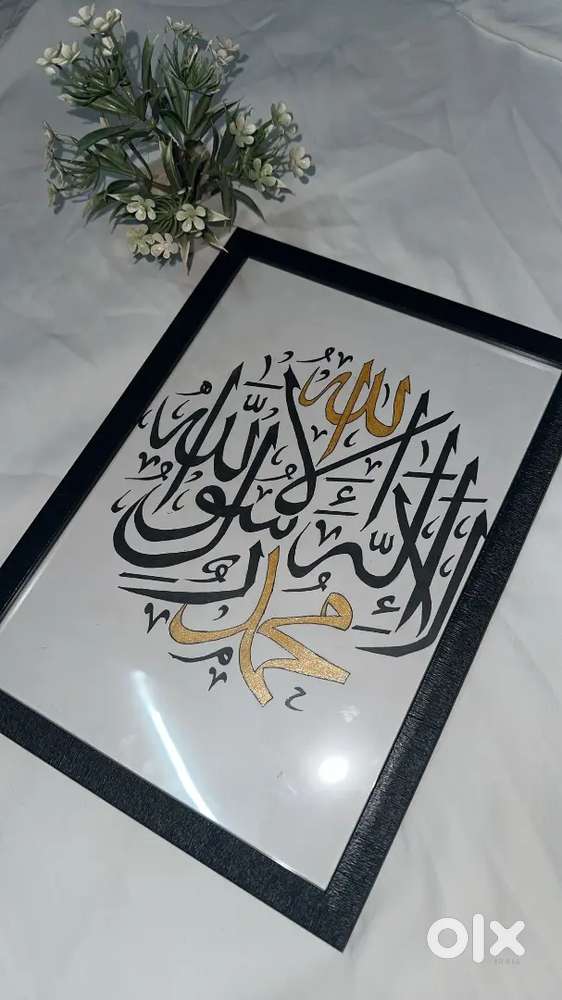 لا إله إلا الله محمد رسول الله
olx
INDIA